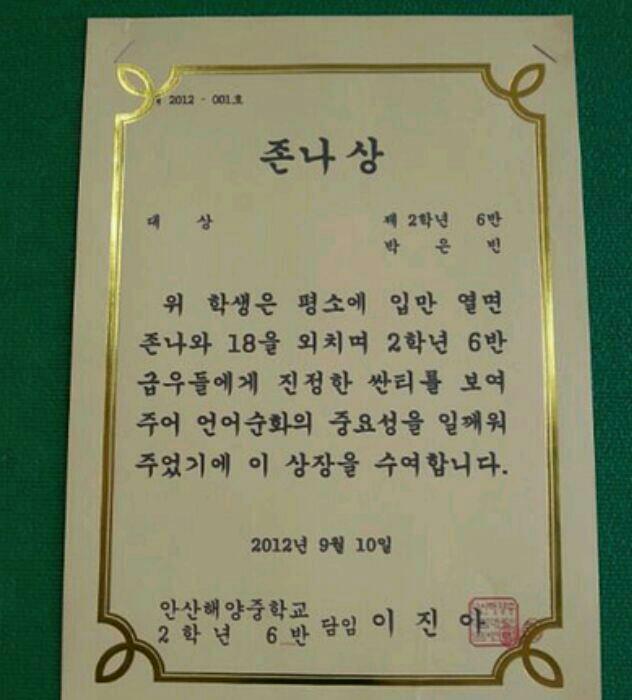 2012 - 001호
존나상
대 상 제 2학년 6반
박 은 빈
위 학생은 평소에 입만 열면
존나와 18을 외치며 2학년 6반
급우들에게 진정한 싼티를 보여
주어 언어순화의 중요성을 일깨워
주었기에 이 상장을 수여합니다.
2012년 9월 10일
안산해양중학교
2 학 년 6 반 담임 이 진 아